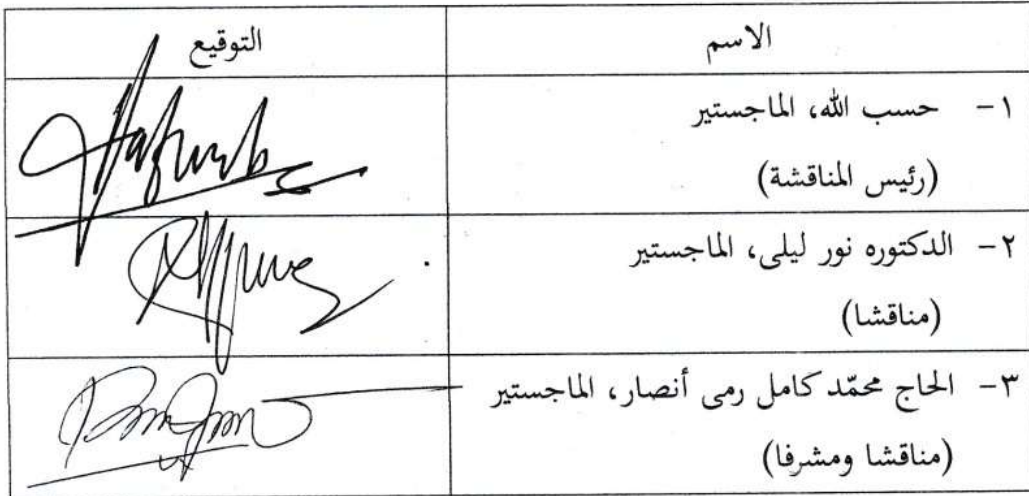 الاسم التوقيع
١- حسب الله، الماجستير
(رئيس المناقشة)
٢- الدكتوره نور ليلى، الماجستير
(مناقشا)
٣- الحاج محمّد كامل رمى أنصار، الماجستير
(مناقشا ومشرفا)